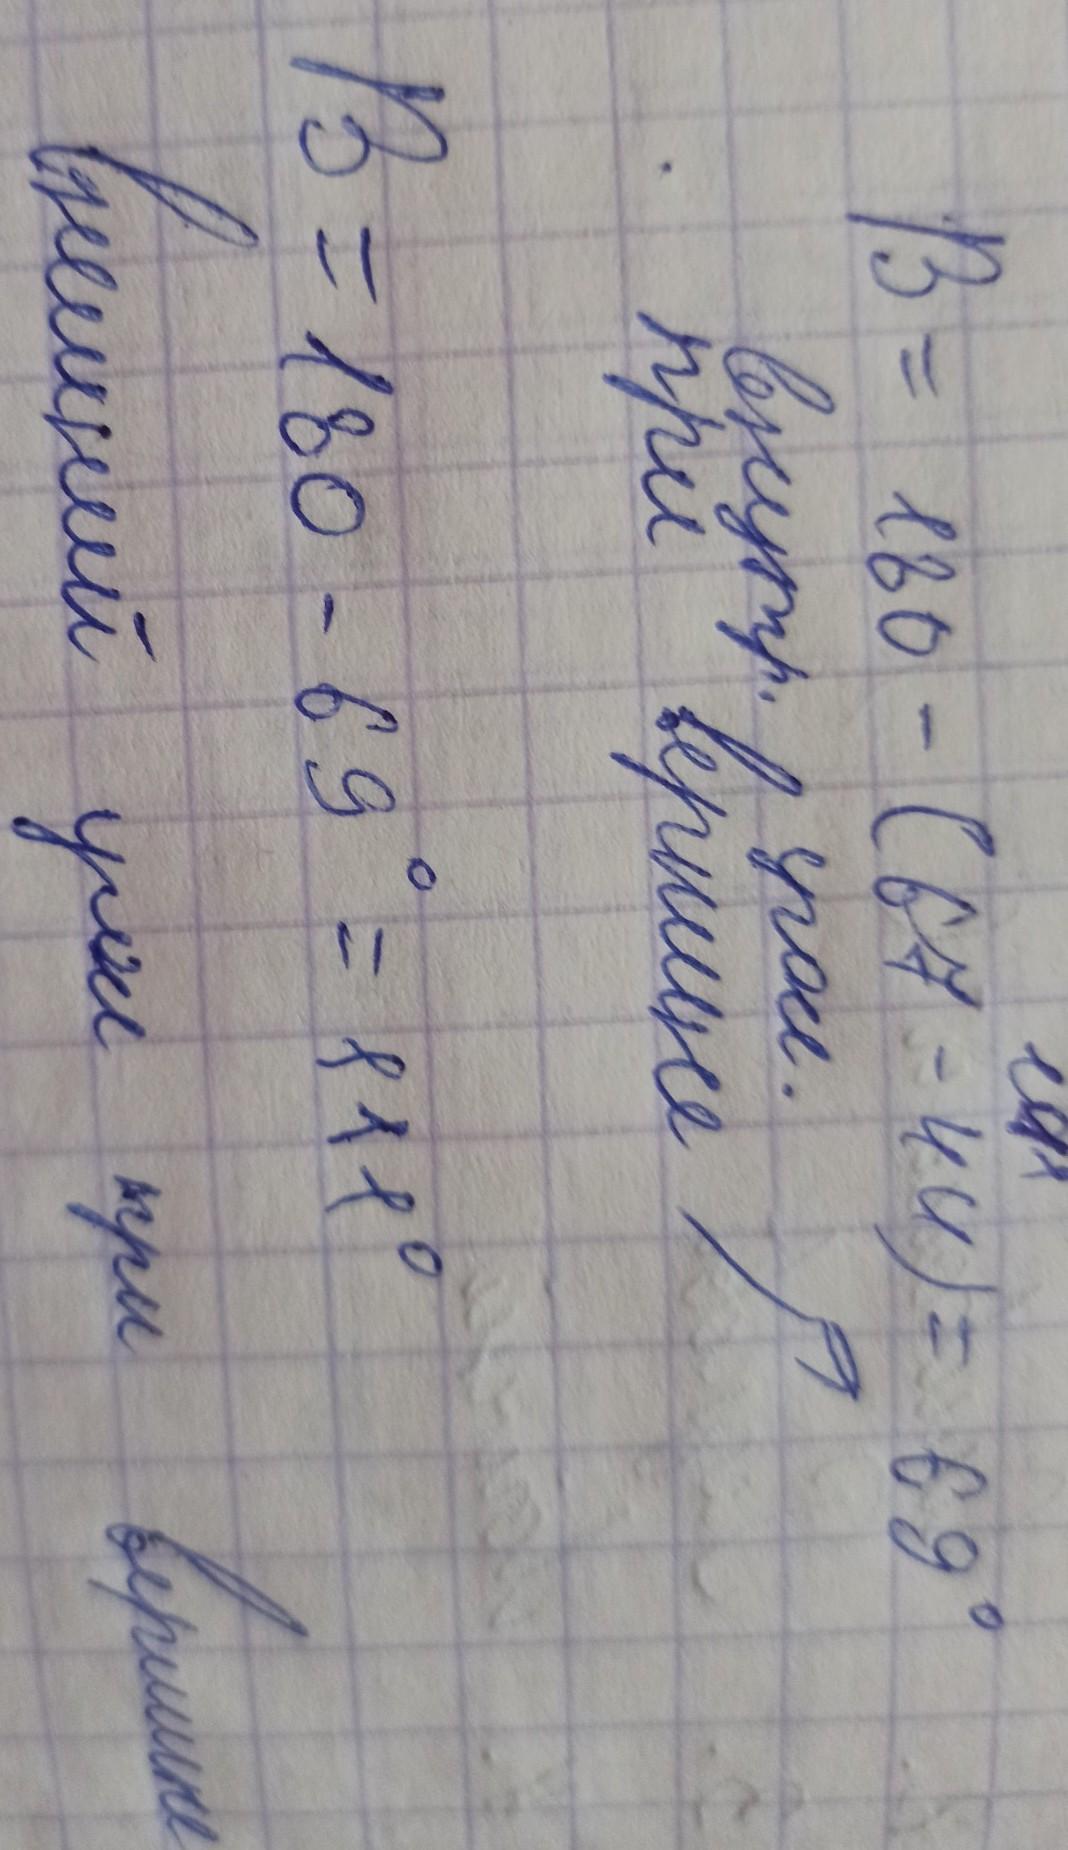 B = 180 - (67 - 44) = 69°
внутр. угол.
при вершине
B = 180 - 69° = 111°
внешний угол при вершине